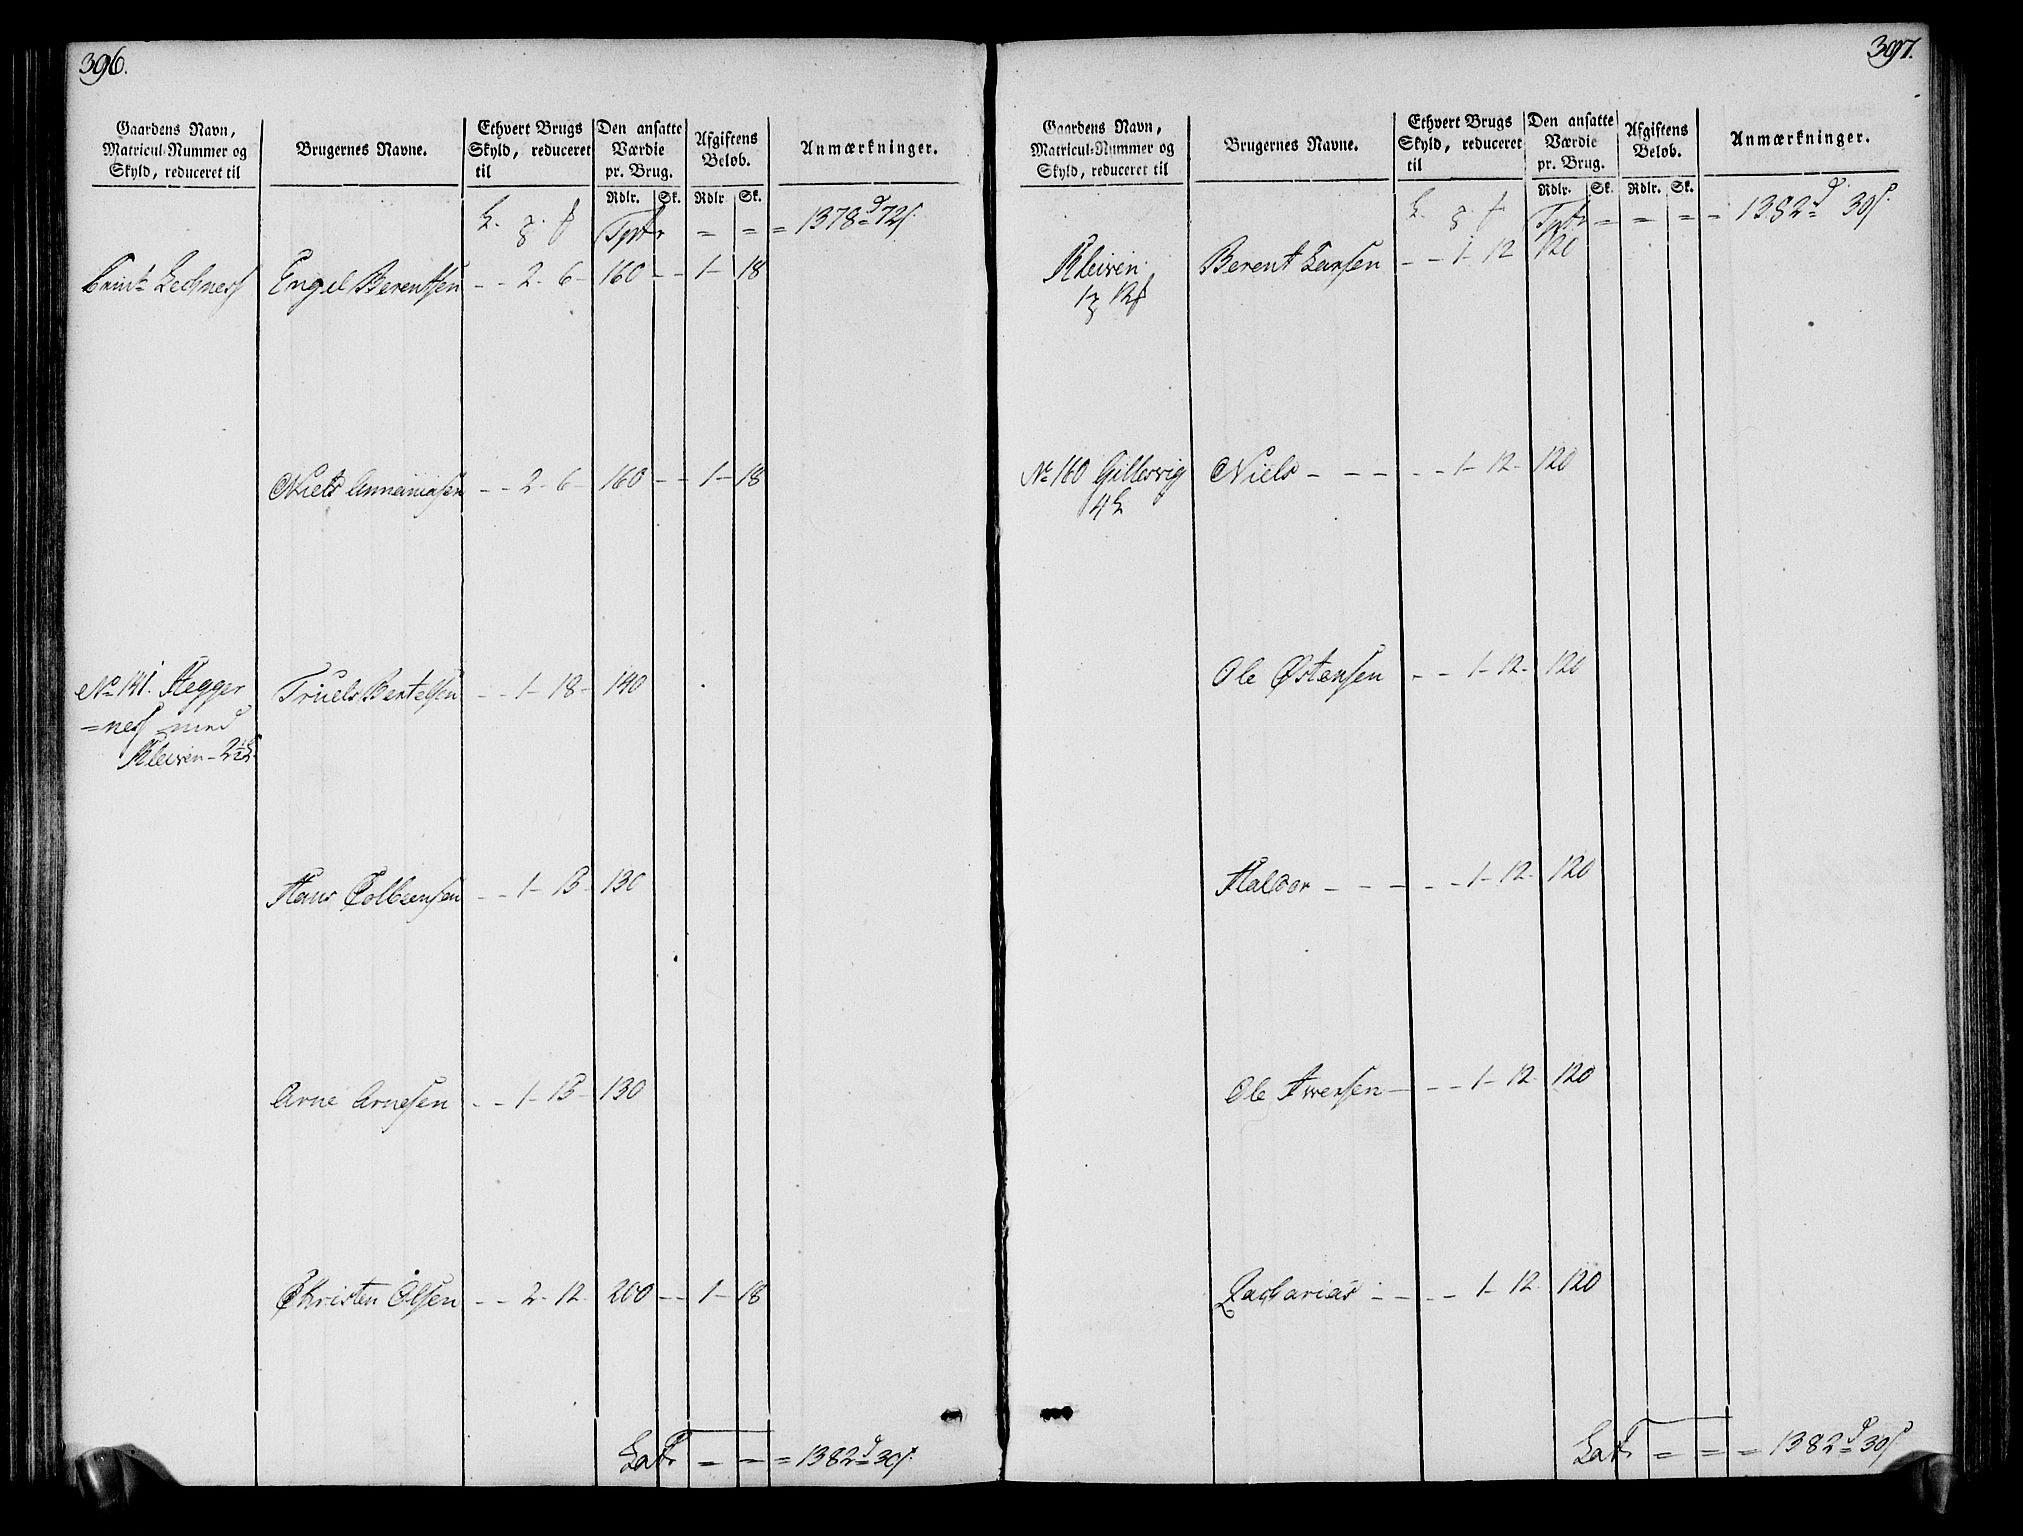 396.
Gaardens Navn, Matricul-Nummer og Skyld, reduceret til
Brugernes Navne.
Ethvert Brugs Skyld, reduceret til
Den ansatte Værdie pr. Brug.
Afgiftens Beløb.
Anmærkninger.
Rdlr. Sk. Rdlr Sk.
Tpt = = = 1378 d 72 s.
Lechness Engel Berentsen - - 2 - 6 - 160 - - 1 - 18
Niels Annaniasen - - 2 - 6 - 160 - - 1 - 18
No 141. Hegger Truels Bertelsen - - 1 - 18 - 140
=ness med
Kleiven - 2½
Hans Colbensen - - 1 - 15 - 130
Arne Arnesen - - 1 - 15 - 130
Christen Olsen - - 2 - 12 - 200 - - 1 - 18
Lat. = = = 1382 d 30 s.
397.
Gaardens Navn, Matricul-Nummer og Skyld, reduceret til
Brugernes Navne.
Ethvert Brugs Skyld, reduceret til
Den ansatte Værdie pr. Brug.
Afgiftens Beløb.
Anmærkninger.
Rdlr. Sk. Rdlr. Sk.
Tpt = = = = 1382 d 30 s.
Kleiven Berent Larsen - - 1 - 12 120
1 12
No 160 Gillesvig Niels - - - - - 1 - 12 - 120
4
Ole Østensen - - 1 - 12 - 120
Haldor - - - - - 1 - 12 - 120
Ole Iversen - - - 1 - 12 - 120
Zacharias - - - - 1 - 12 - 120
Lat. = = = 1382 d 30 s